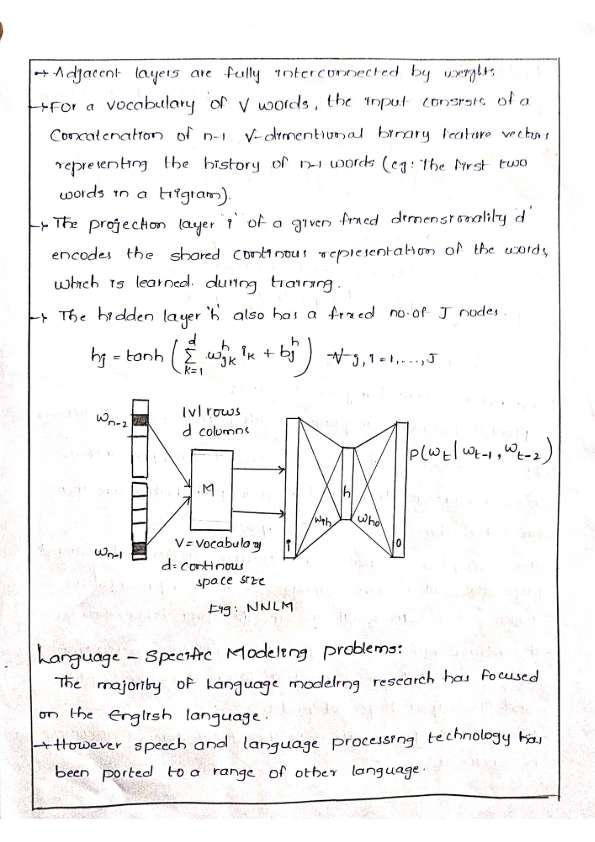 → Adjacent layers are fully interconnected by weights.
→ For a vocabulary of V words, the input consists of a
Concatenation of n-1 V-dimentional binary feature vectors
representing the history of n-1 words (eg: The first two
words in a trigram).
→ The projection layer 'i' of a given fixed dimensionality 'd'
encodes the shared continous representation of the words,
which is learned during training.
→ The hidden layer 'h' also has a fixed no.of J nodes.
hj = tanh ( Σ_{k=1}^{d} w^h_{jk} i_k + b^h_j ) ∀ j, i = 1, ..., J
w_{n-2}
|v| rows
d columns
M
w_{n-1}
V = vocabulary
d = continous
space size
i
w_{ih}
h
w_{ho}
o
P(w_t | w_{t-1}, w_{t-2})
Fig: NNLM
Language - Specific Modeling problems:
The majority of Language modeling research has focused
on the English language.
→ However speech and language processing technology has
been ported to a range of other language.